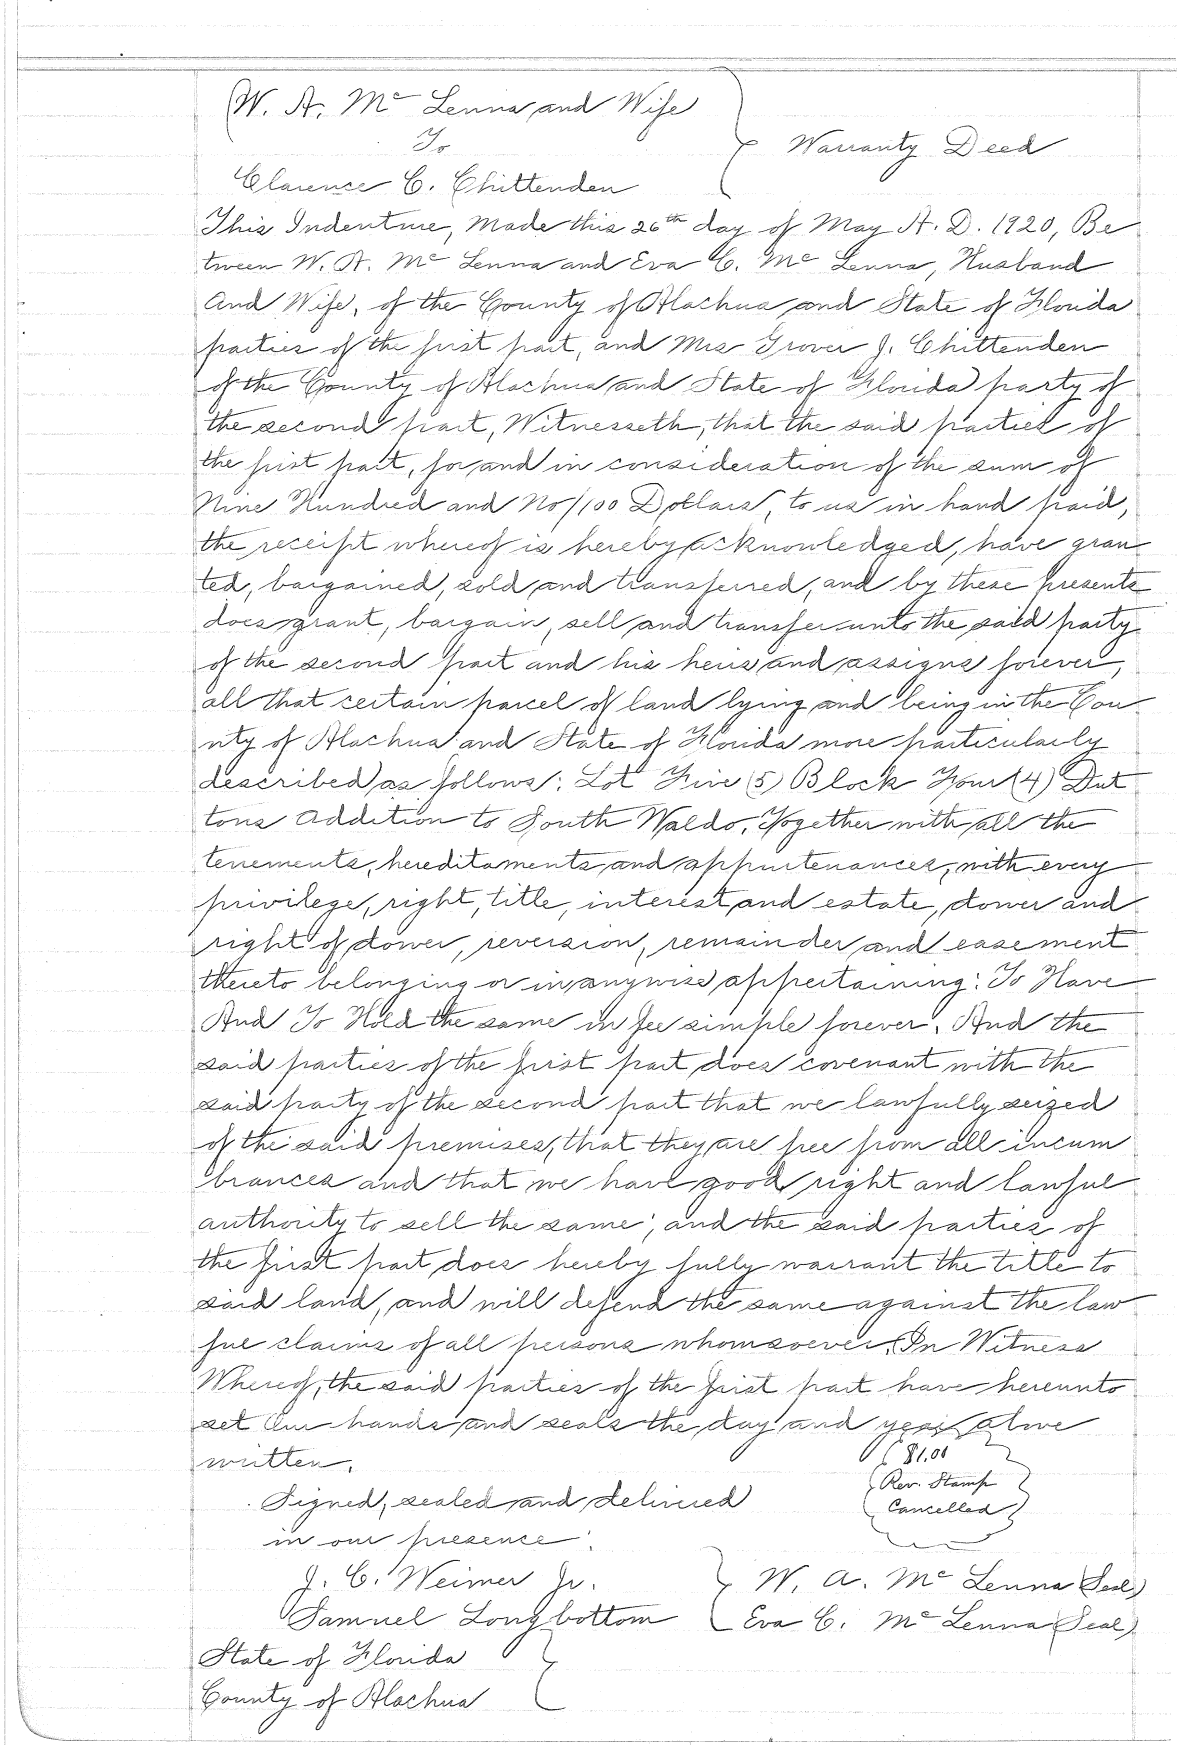 W. A. Mc Lenna and Wife
To
Warranty Deed
Clarence C. Chittenden
This Indenture, Made this 26th day of May A. D. 1920, Be
tween W. A. Mc Lenna and Eva C. Mc Lenna, Husband
And Wife, of the County of Alachua and State of Florida
parties of the first part, and Mrs Grover J. Chittenden
of the County of Alachua and State of Florida party of
the second part, Witnesseth, that the said parties of
the first part, for and in consideration of the sum of
Nine Hundred and No/100 Dollars, to us in hand paid,
the receipt whereof is hereby acknowledged, have gran
ted, bargained, sold and transferred, and by these presents
does grant, bargain, sell and transfer unto the said party
of the second part and his heirs and assigns forever,
all that certain parcel of land lying and being in the Cou
nty of Alachua and State of Florida more particularly
described as follows: Lot Five (5) Block Four (4) Dut
tons Addition to South Waldo, Together with all the
tenements, hereditaments and appurtenances, with every
privilege, right, title, interest and estate, dower and
right of dower, reversion, remainder and easement
thereto belonging or in anywise appertaining: To Have
And To Hold the same in fee simple forever. And the
said parties of the first part does covenant with the
said party of the second part that we lawfully seized
of the said premises, that they are free from all incum
brances and that we have good right and lawful
authority to sell the same; and the said parties of
the first part does hereby fully warrant the title to
said land, and will defend the same against the law
ful claims of all persons whomsoever. In Witness
Whereof, the said parties of the first part have hereunto
set Our hands and seals the day and year above
written.
$1.00
Rev. Stamp
Cancelled
Signed, sealed and delivered
in our presence:
J. C. Weimer Jr. W. A. Mc Lenna (Seal)
Samuel Longbottom Eva C. Mc Lenna (Seal)
State of Florida
County of Alachua